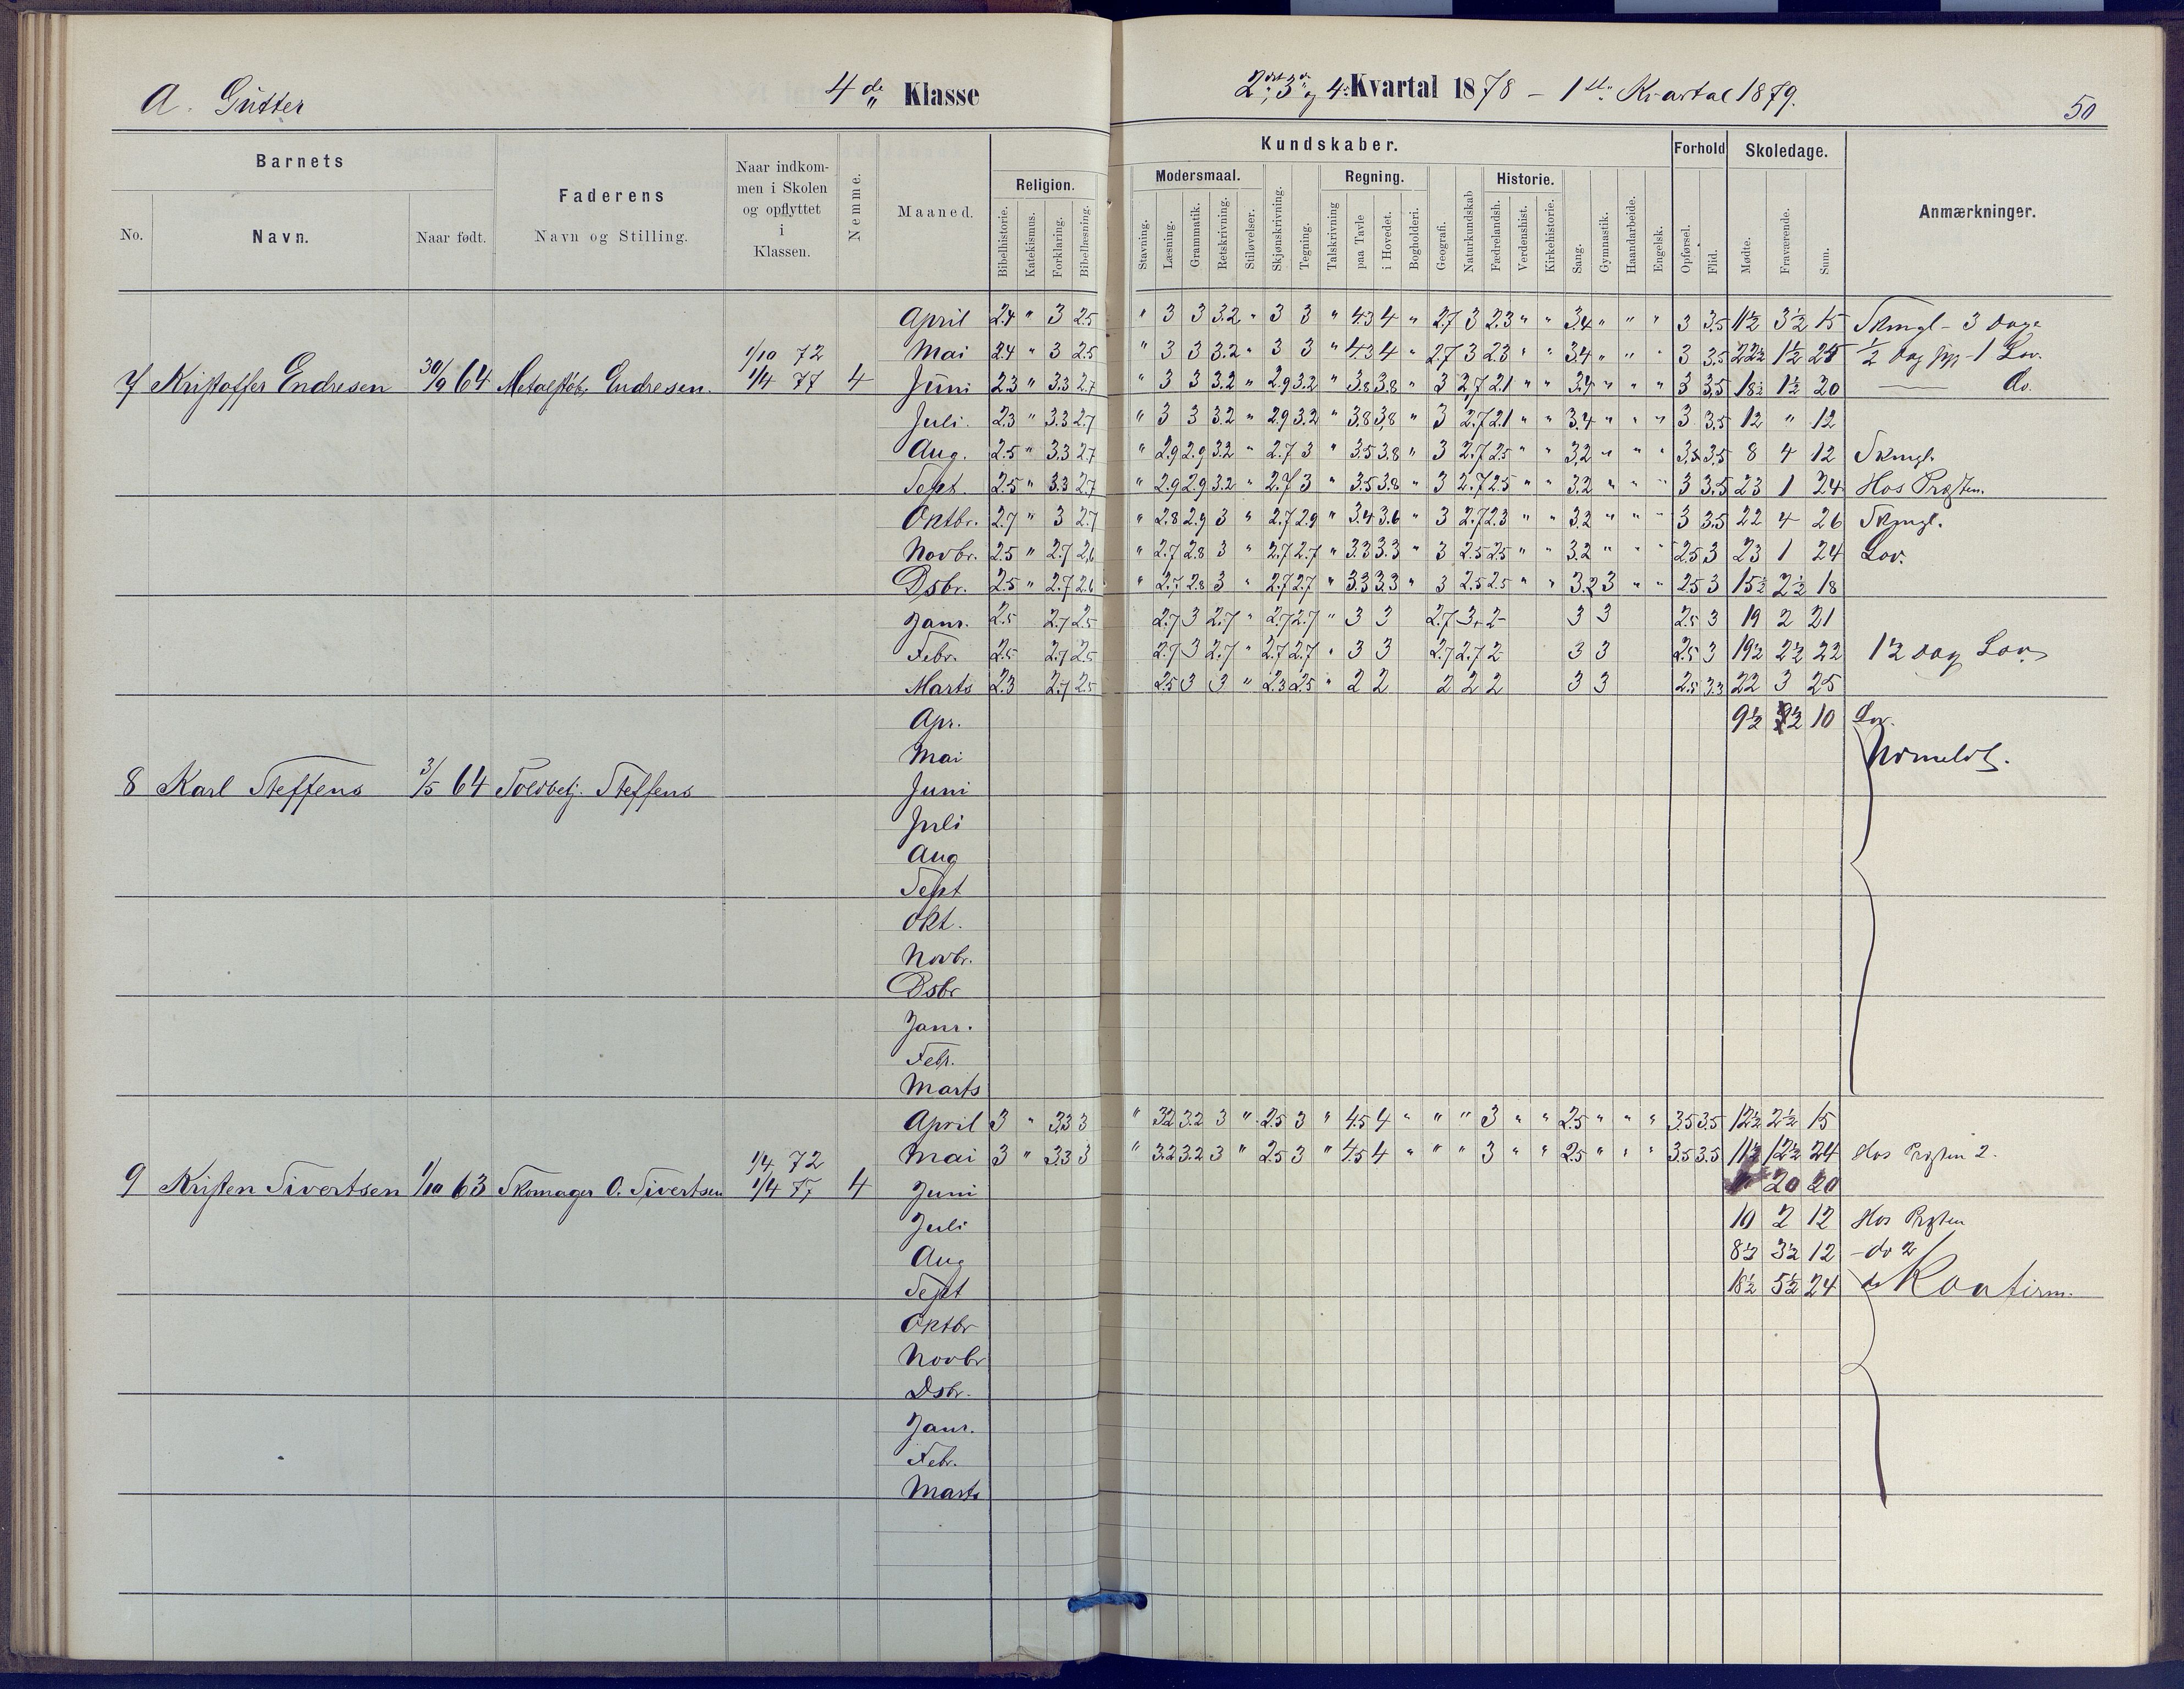 A. Gutter
4de Klasse
2det, 3die og 4. Kvartal 1878 – 1ste Kvartal 1879.
50
Barnets
No.
Navn.
Naar født.
Faderens
Navn og Stilling.
Naar indkom-
men i Skolen
og opflyttet
i
Klassen.
Nemme.
Maaned.
Kundskaber.
Religion.
Bibelhistorie.
Katekismus.
Forklaring.
Bibellæsning.
Modersmaal.
Stavning.
Læsning.
Grammatik.
Retskrivning.
Stiløvelser.
Skjønskrivning.
Tegning.
Regning.
Talskrivning
paa Tavle
i Hovedet.
Bogholderi.
Geografi.
Naturkundskab
Historie.
Fædrelandsh.
Verdenshist.
Kirkehistorie.
Sang.
Gymnastik.
Haandarbeide.
Engelsk.
Forhold
Opførsel.
Flid.
Skoledage.
Mødte.
Fraværende.
Sum.
Anmærkninger.
7 Kristoffer Endresen 30/9 64 Metalstøb. Endresen. 1/10 72 1/4 77 4
April 2.4 " 3 2.5 " 3 3 3.2 " 3 3 " 4.3 4 " 2.7 3 2.3 " " 3.4 " " " 3 3.5 11½ 3½ 15 Skmgl – 3 Dage
Mai 2.4 " 3 2.5 " 3 3 3.2 " 3 3 " 4.3 4 " 2.7 3 2.3 " " 3.4 " " " 3 3.5 22½ 1½ 24 ½ Dag – 1 Lov.
Juni 2.3 " 3.3 2.7 " 3 3 3.2 " 2.9 3.2 " 3.8 3.8 " 3 2.7 2.1 " " 3.4 " " " 3 3.5 18½ 1½ 20 do.
Juli. 2.3 " 3.3 2.7 " 3 3 3.2 " 2.9 3.2 " 3.8 3.8 " 3 2.7 2.1 " " 3.4 " " " 3 3.5 12 " 12
Aug. 2.5 " 3.3 2.7 " 2.9 2.9 3.2 " 2.7 3 " 3.5 3.8 " 3 2.7 2.5 " " 3.2 " " " 3.5 3.5 8 4 12 Skmgl.
Sept. 2.5 " 3.3 2.7 " 2.9 2.9 3.2 " 2.7 3 " 3.5 3.8 " 3 2.7 2.5 " " 3.2 " " " 3 3.5 23 1 24 Hos Præsten.
Oktbr. 2.7 " 3 2.7 " 2.8 2.9 3 " 2.7 2.9 " 3.4 3.6 " 3 2.7 2.3 " " 3.2 " " " 3 3.5 22 4 26 Skmgl.
Novbr. 2.5 " 2.7 2.6 " 2.7 2.8 3 " 2.7 2.7 " 3.3 3.3 " 3 2.5 2.5 " " 3.2 " " " 2.5 3 23 1 24 Lov.
Dsbr. 2.5 " 2.7 2.6 " 2.7 2.8 3 " 2.7 2.7 " 3.3 3.3 " 3 2.5 2.5 " " 3.2 3 " " 2.5 3 15½ 2½ 18
Janr. 2.5 2.7 2.5 2.7 3 2.7 " 2.7 2.7 " 3 3 2.7 3 2 3 3 2.5 3 19 2 21
Febr. 2.5 2.7 2.5 2.7 3 2.7 " 2.7 2.7 " 3 3 2.7 2.7 2 3 3 2.5 3 19½ 2½ 22 1½ Dag Lov
Marts 2.3 2.7 2.5 2.5 3 3 " 2.3 2.5 " 2 2 2 2 2 3 3 2.5 3.3 22 3 25
8 Karl Steffens 3/5 64 Toldbetj. Steffens
Apr. 9½ ½ 10 Lov.
Mai Udmeldt.
Juni
Juli
Aug
Sept
Okt.
Novbr.
Dsbr
Janr.
Febr.
Marts
9 Kristen Sivertsen 1/10 63 Skomager O. Sivertsen 1/4 72 1/4 77 4
April 3 " 3.3 3 " 3.2 3.2 3 " 2.5 3 " 4.5 4 " " " 3 " " 2.5 " " " 3.5 3.5 12½ 2½ 15
Mai 3 " 3.3 3 " 3.2 3.2 3 " 2.5 3 " 4.5 4 " " " 3 " " 2.5 " " " 3.5 3.5 11½ 12½ 24 Hos Præsten 2.
Juni 20 20
Juli 10 2 12 Hos Præsten
Aug 8½ 3½ 12 – do 2
Sept 18½ 5½ 24 do Konfirm.
Oktbr
Novbr
Dsbr.
Janr.
Febr.
Marts